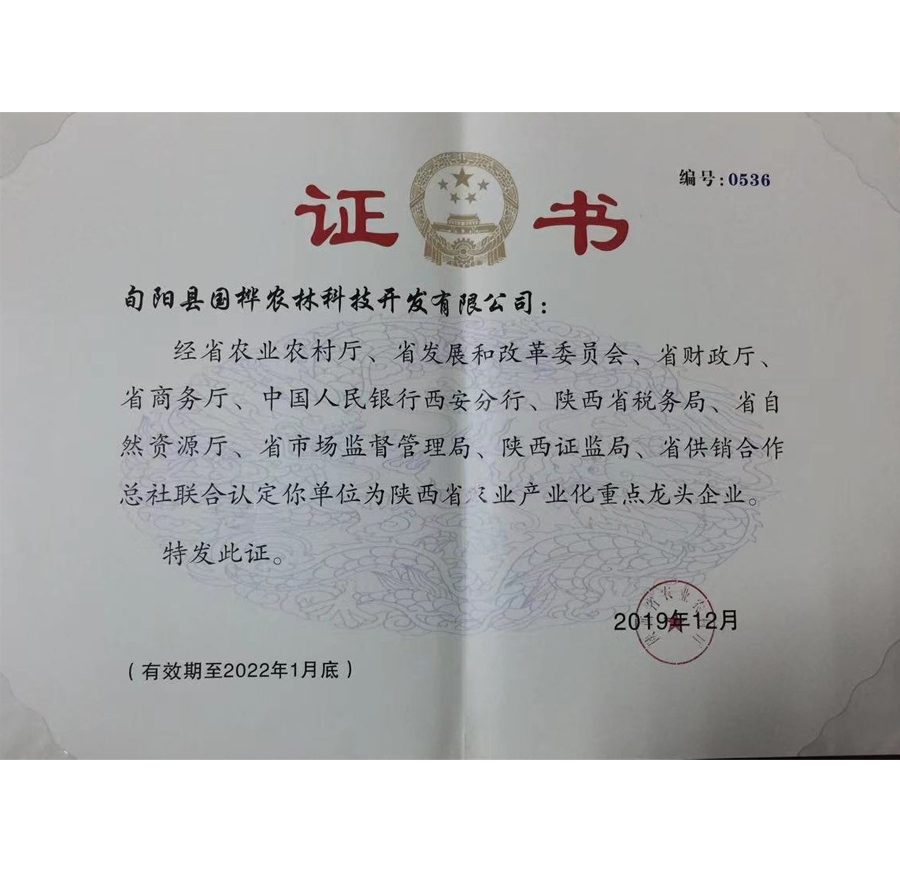 编号:0536
证书
旬阳县国桦农林科技开发有限公司:
经省农业农村厅、省发展和改革委员会、省财政厅、
省商务厅、中国人民银行西安分行、陕西省税务局、省自
然资源厅、省市场监督管理局、陕西证监局、省供销合作
总社联合认定你单位为陕西省农业产业化重点龙头企业。
特发此证。
2019年12月
(有效期至2022年1月底)